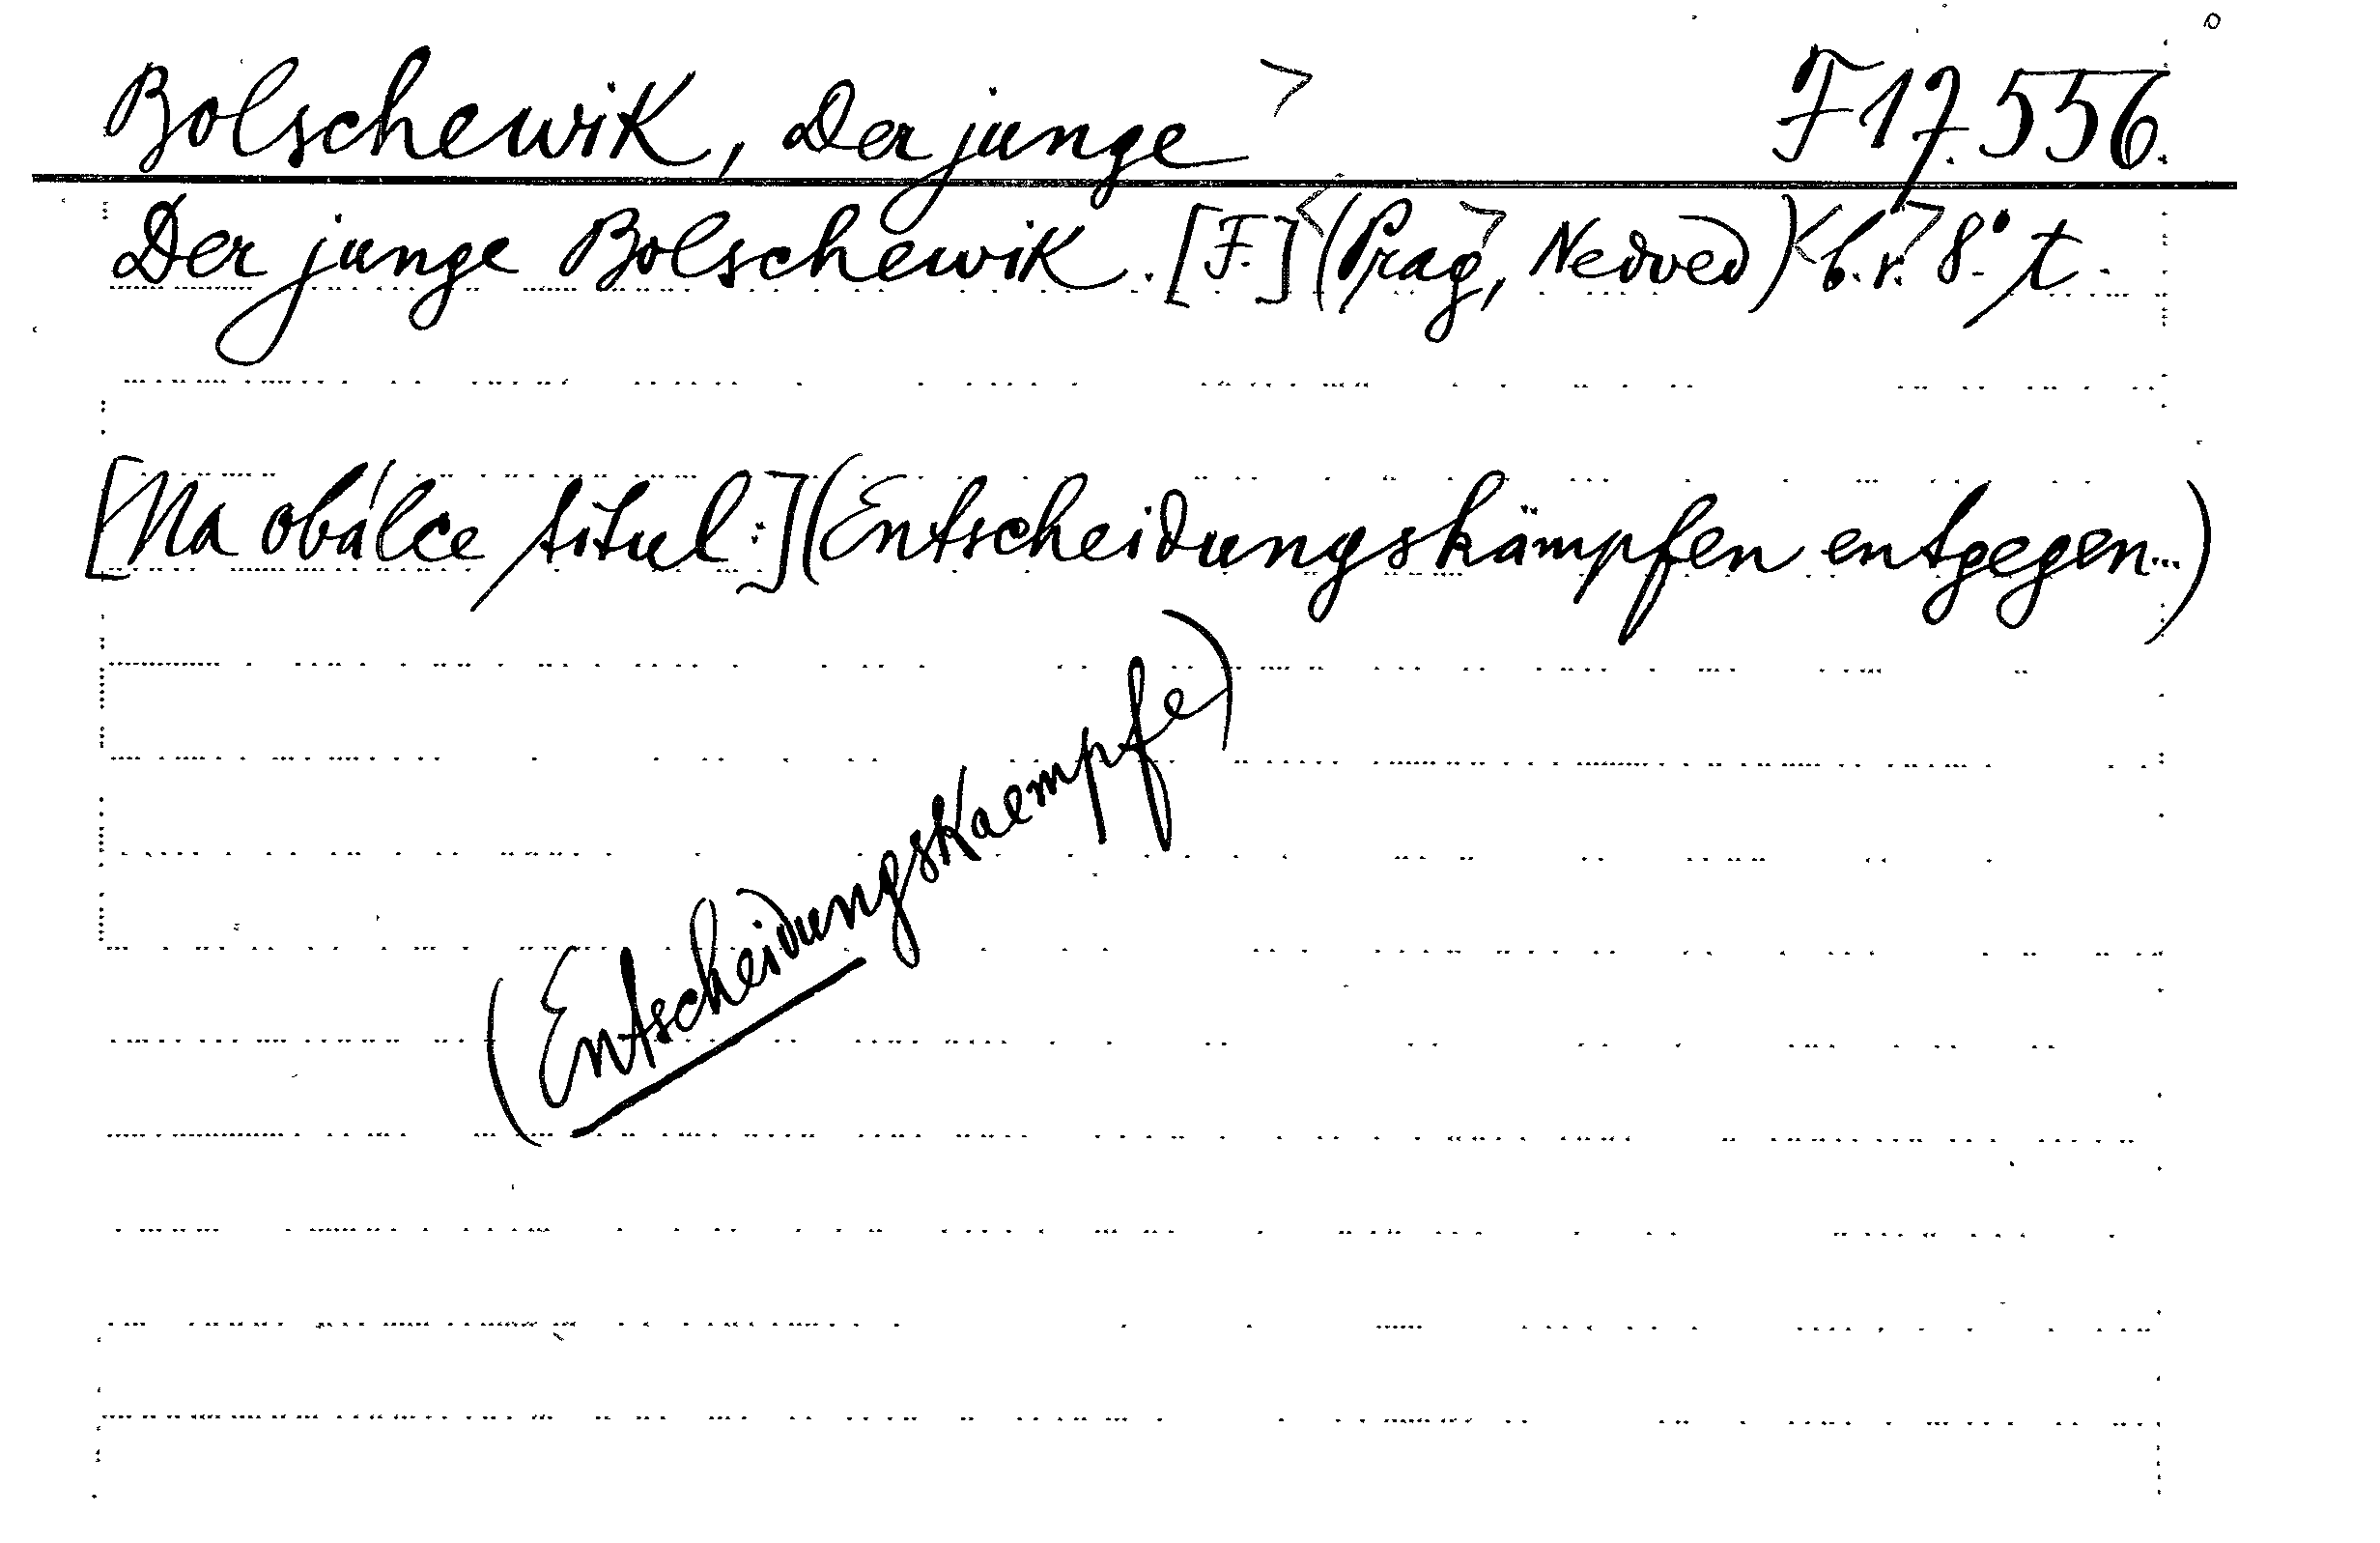 Bolschewik, Der junge > F 17.556.
Der junge Bolschewik. [F.] <(Prag>, Nedved) <b.r.> 8° t.
[Na obálce titul:] (Entscheidungskämpfen entgegen...)
(Entscheidungskaempfe)